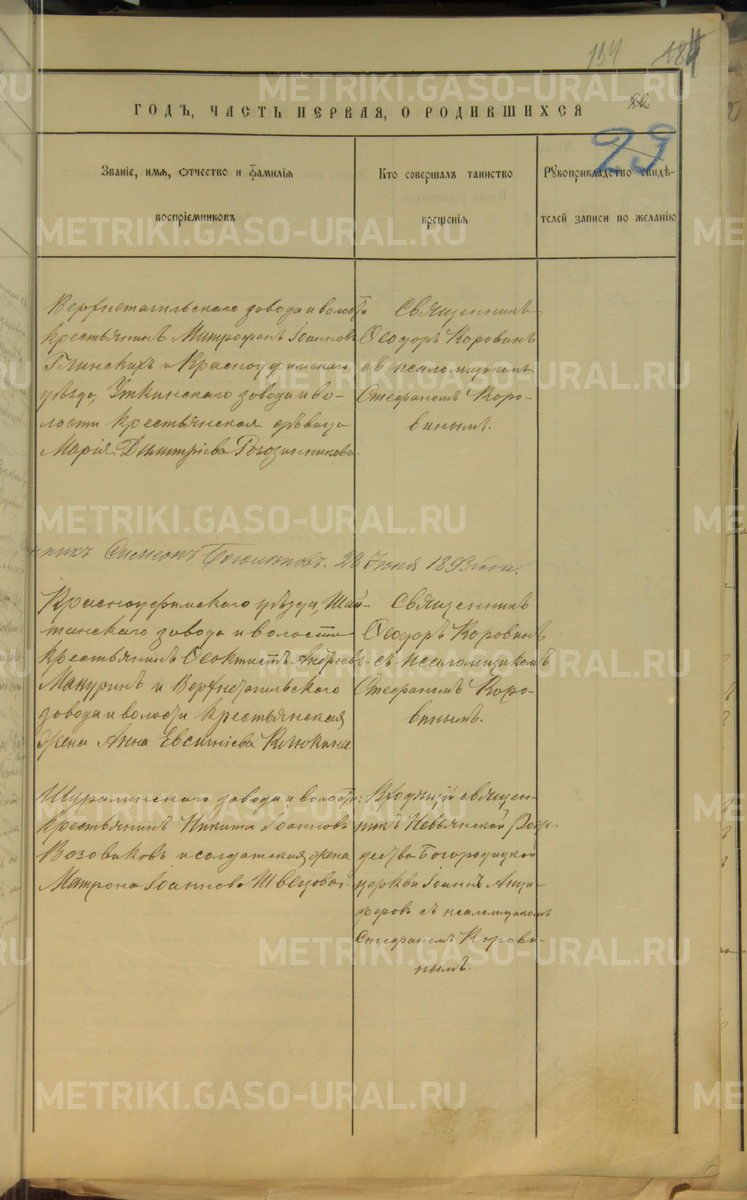 154 184
ГОДЪ, ЧАСТЬ ПЕРВАЯ, О РОДИВШИХСЯ
29
Званіе, имя, отчество и фамилія
воспріемниковъ
Кто совершалъ таинство
крещенія
Рукоприкладство свидѣ-
телей записи по желанію
Верхнетагильскаго завода и волости
крестьянинъ Митрофанъ Іоанновъ
Глинскихъ и Красноуфимскаго
уѣзда, Уткинскаго завода и во-
лости крестьянская дѣвица
Марія Димитріева Рогозинникова.
Священникъ
Ѳеодоръ Коровинъ
съ псаломщикомъ
Стефаномъ Коро-
винымъ.
Симеонъ 28 Іюня 1893 года.
Красноуфимскаго уѣзда, Шай-
танскаго завода и волости
крестьянинъ Ѳеоктистъ Андреевъ
Макуринъ и Верхнетагильскаго
завода и волости крестьянская
жена Анна Евсигніева Клюкина
Священникъ
Ѳеодоръ Коровинъ
съ псаломщикомъ
Стефаномъ Коро-
винымъ.
Шуралинскаго завода и волости
крестьянинъ Никита Іоанновъ
Возовиковъ и солдатская жена
Матрона Іоаннова Швецова.
священ-
никъ Невьянской Рож-
дества Богородицкой
церкви Іоаннъ Анци-
феровъ съ псаломщикомъ
Стефаномъ Корови-
нымъ.
METRIKI.GASO-URAL.RU